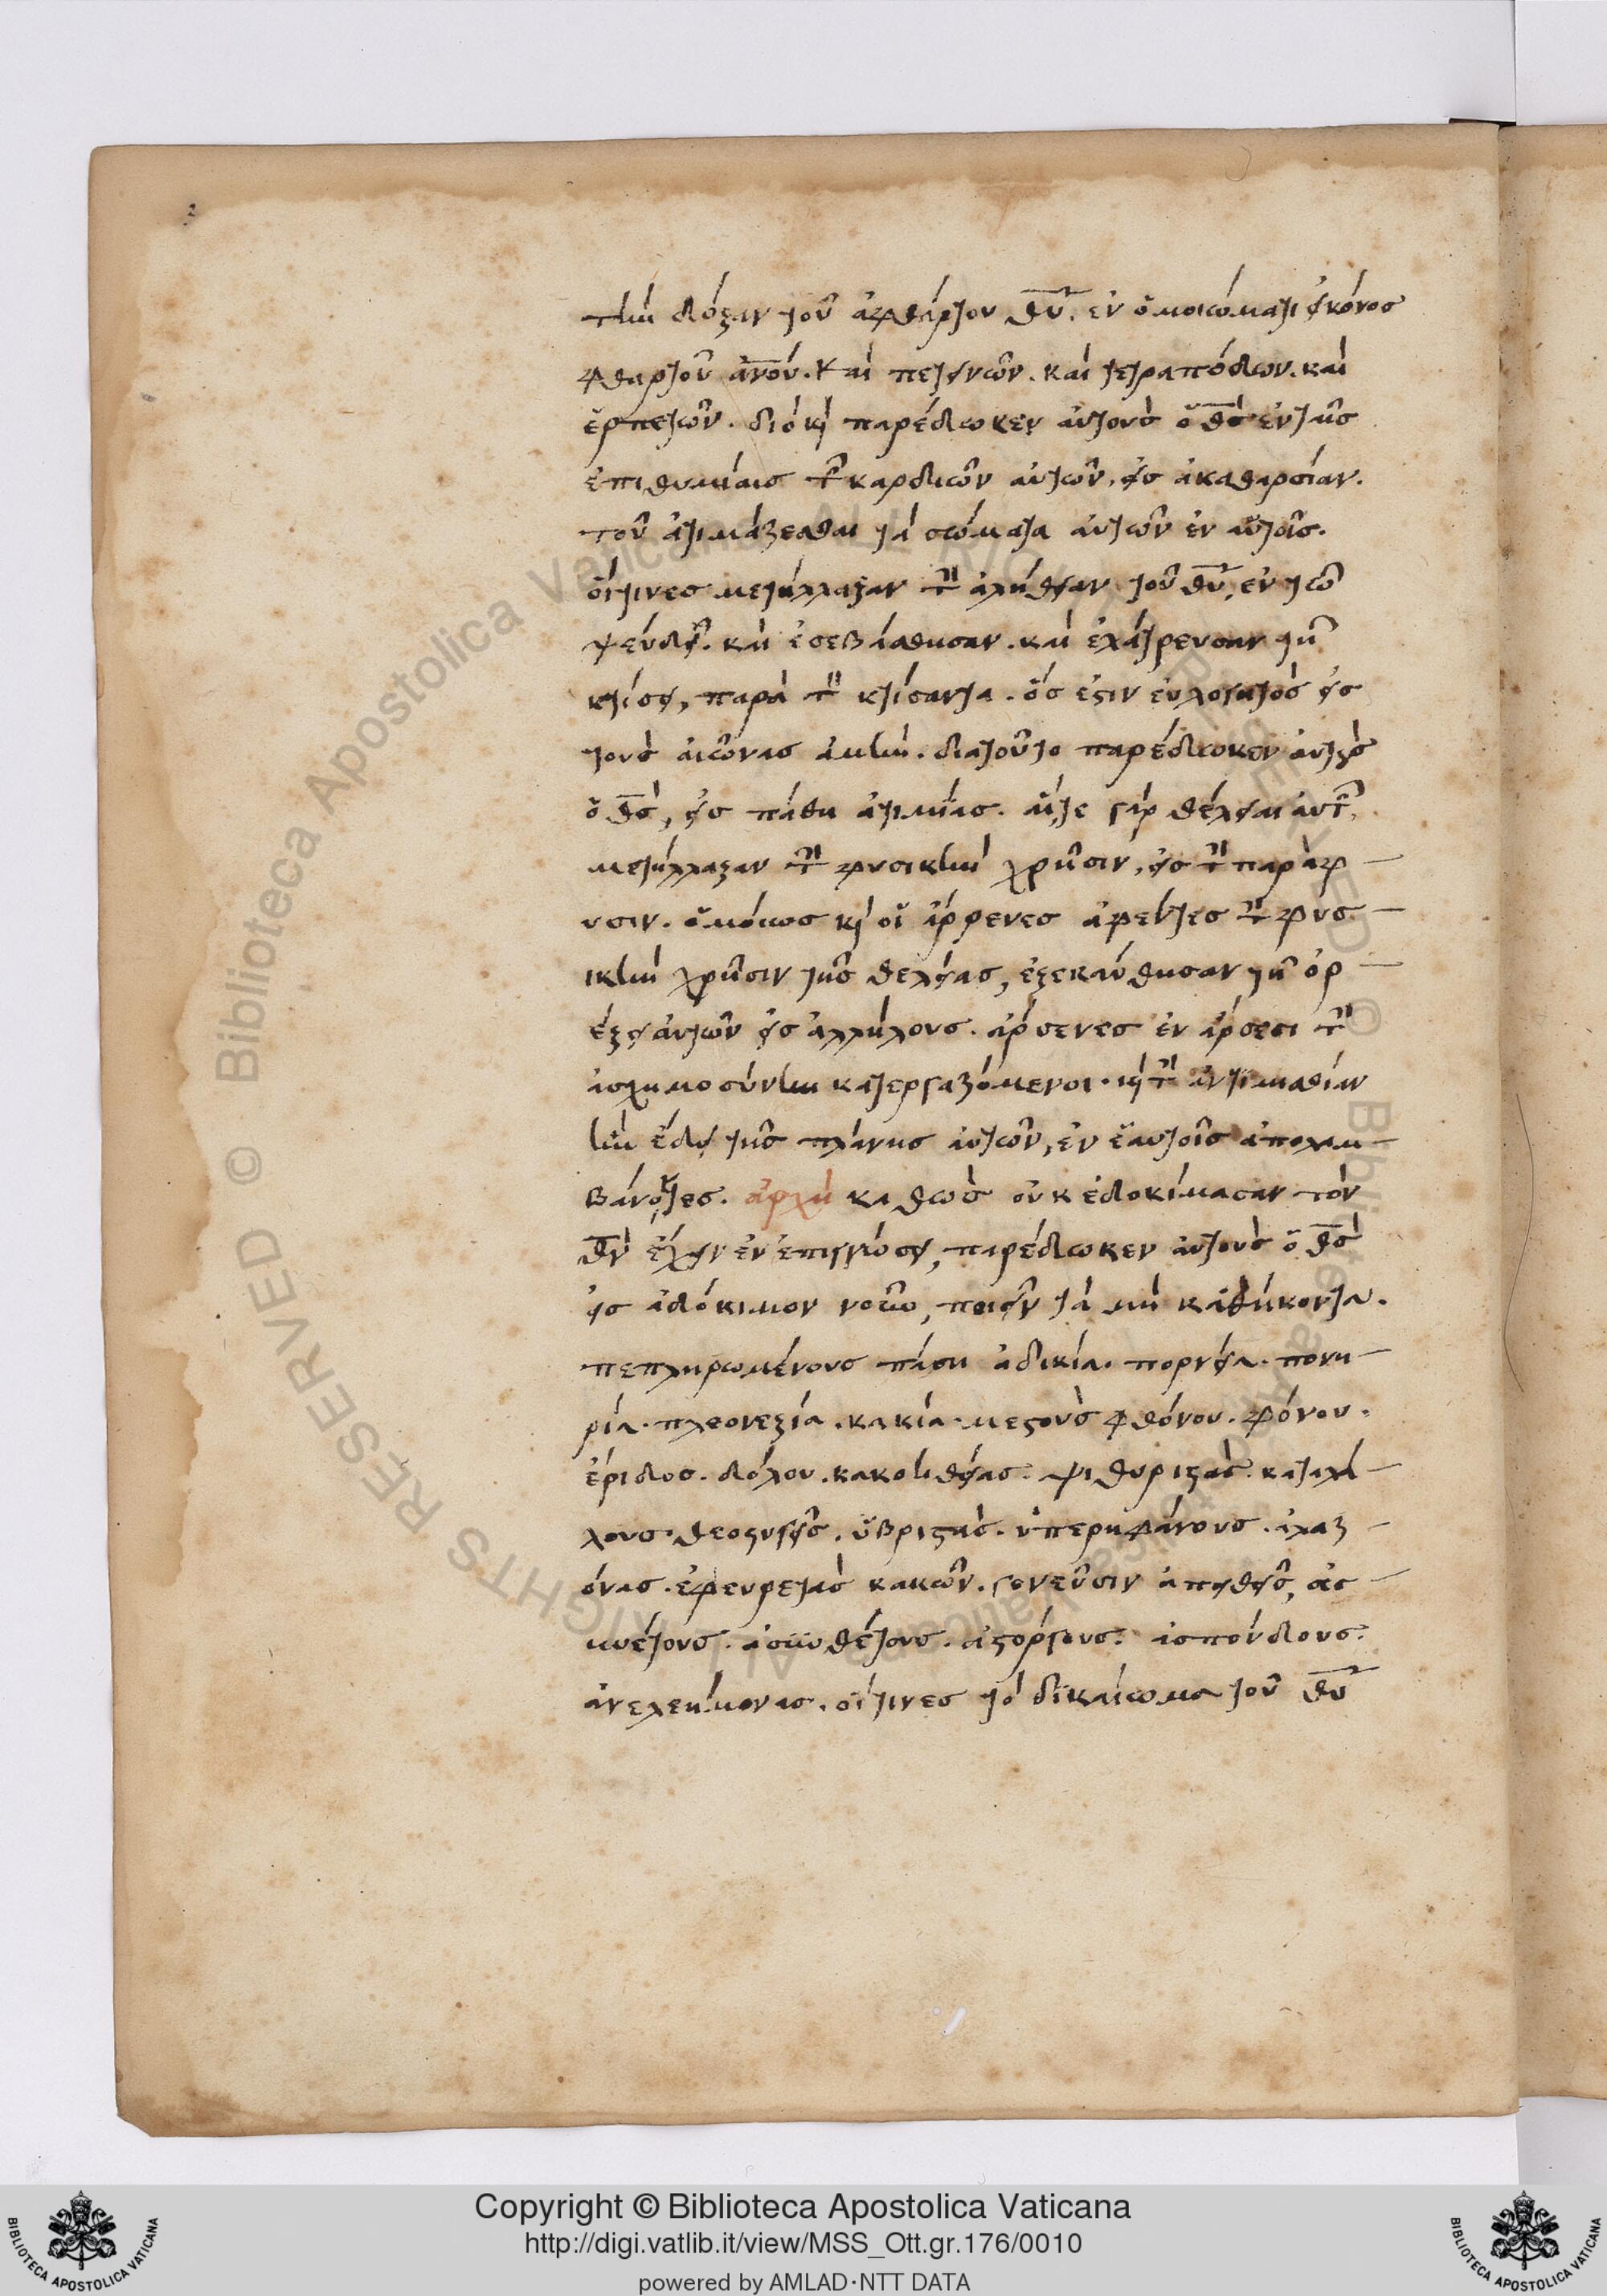 τὴν δόξαν τοῦ ἀφθάρτου θῡ. ἐν ὁμοιώματι εἰκόνος
φθαρτοῦ ἀνου. καὶ πετεινῶν. καὶ τετραπόδων. καὶ
ἑρπετῶν. διὸ κ̀ παρέδωκεν αὐτοὺς ὁ θς̄ ἐν ταῖς
ἐπιθυμίαις τ̑ καρδιῶν αὐτῶν. εἰς ἀκαθαρσίαν.
τοῦ ἀτιμάζεσθαι τὰ σώματα αὐτῶν ἐν αὑτοῖς.
οἵτινες μετήλλαξαν τ̀ ἀλήθειαν τοῦ θῡ, ἐν τῶ
ψεύδει. καὶ ἐσεβάσθησαν. καὶ ἐλάτρευσαν τῆ
κτίσει, παρὰ τ̀ κτίσαντα. ὅς ἐστιν εὐλογητὸς εἰς
τοὺς αἰῶνας ἀμήν. διατοῦτο παρέδωκεν αὐτοὺς
ὁ θς̄, εἰς πάθη ἀτιμίας. αἵτε γὰρ θέλειαι αὐτ̑,
μετήλλαξαν τ̀ φυσικὴν χρῆσιν, εἰς τ̀ παρὰ φ
υσιν. ὁμόιως κ̀ οἱ ἄρρενες ἀφέντες τ̀ φυσ
ικὴν χρῆσιν τῆς θελείας, ἐξεκαύθησαν τῆ ὀρ
έξει αὐτῶν εἰς ἀλλήλους. ἄρσενες ἐν ἄρσεσι τ̀
ἀσχημοσύνην κατεργαζόμενοι. κ̀ τ̀ ἀντιμισθίαν
ἣν ἔδει τῆς πλάνης αὐτῶν, ἐν ἑαυτοῖς ἀπολαμ
βάνοντες. ἀρχὴ καθὼς οὐκ ἐδοκίμασαν τὸν
θν̄ ἔχειν ἐν ἐπιγνώσει, παρέδωκεν αὐτοὺς ὁ θς̄
εἰς ἀδόκιμον νοῦν, ποιεῖν τὰ μὴ καθήκοντα.
πεπληρωμένους πάση ἀδικία. πορνεία. πονη
ρία. πλεονεξία. κακία. μεστοὺς φθόνου. φόνου.
ἔριδος. δόλου. κακοηθείας. ψιθυριστὰς. καταλά
λους. θεοστυγεῖς. ὑβριστὰς. ὑπερηφάνους. ἀλαζ
όνας. ἐφευρετὰς κακῶν. γονεῦσιν ἀπειθεῖς, ἀσ
υνέτους. ἀσυνθέτους. ἀστόργους. ἀσπόνδους.
ἀνελεήμονας. οἵτινες τὸ δικαίωμα τοῦ θῡ
Copyright © Biblioteca Apostolica Vaticana
http://digi.vatlib.it/view/MSS_Ott.gr.176/0010
powered by AMLAD·NTT DATA
BIBLIOTECA APOSTOLICA VATICANA
BIBLIOTECA APOSTOLICA VATICANA